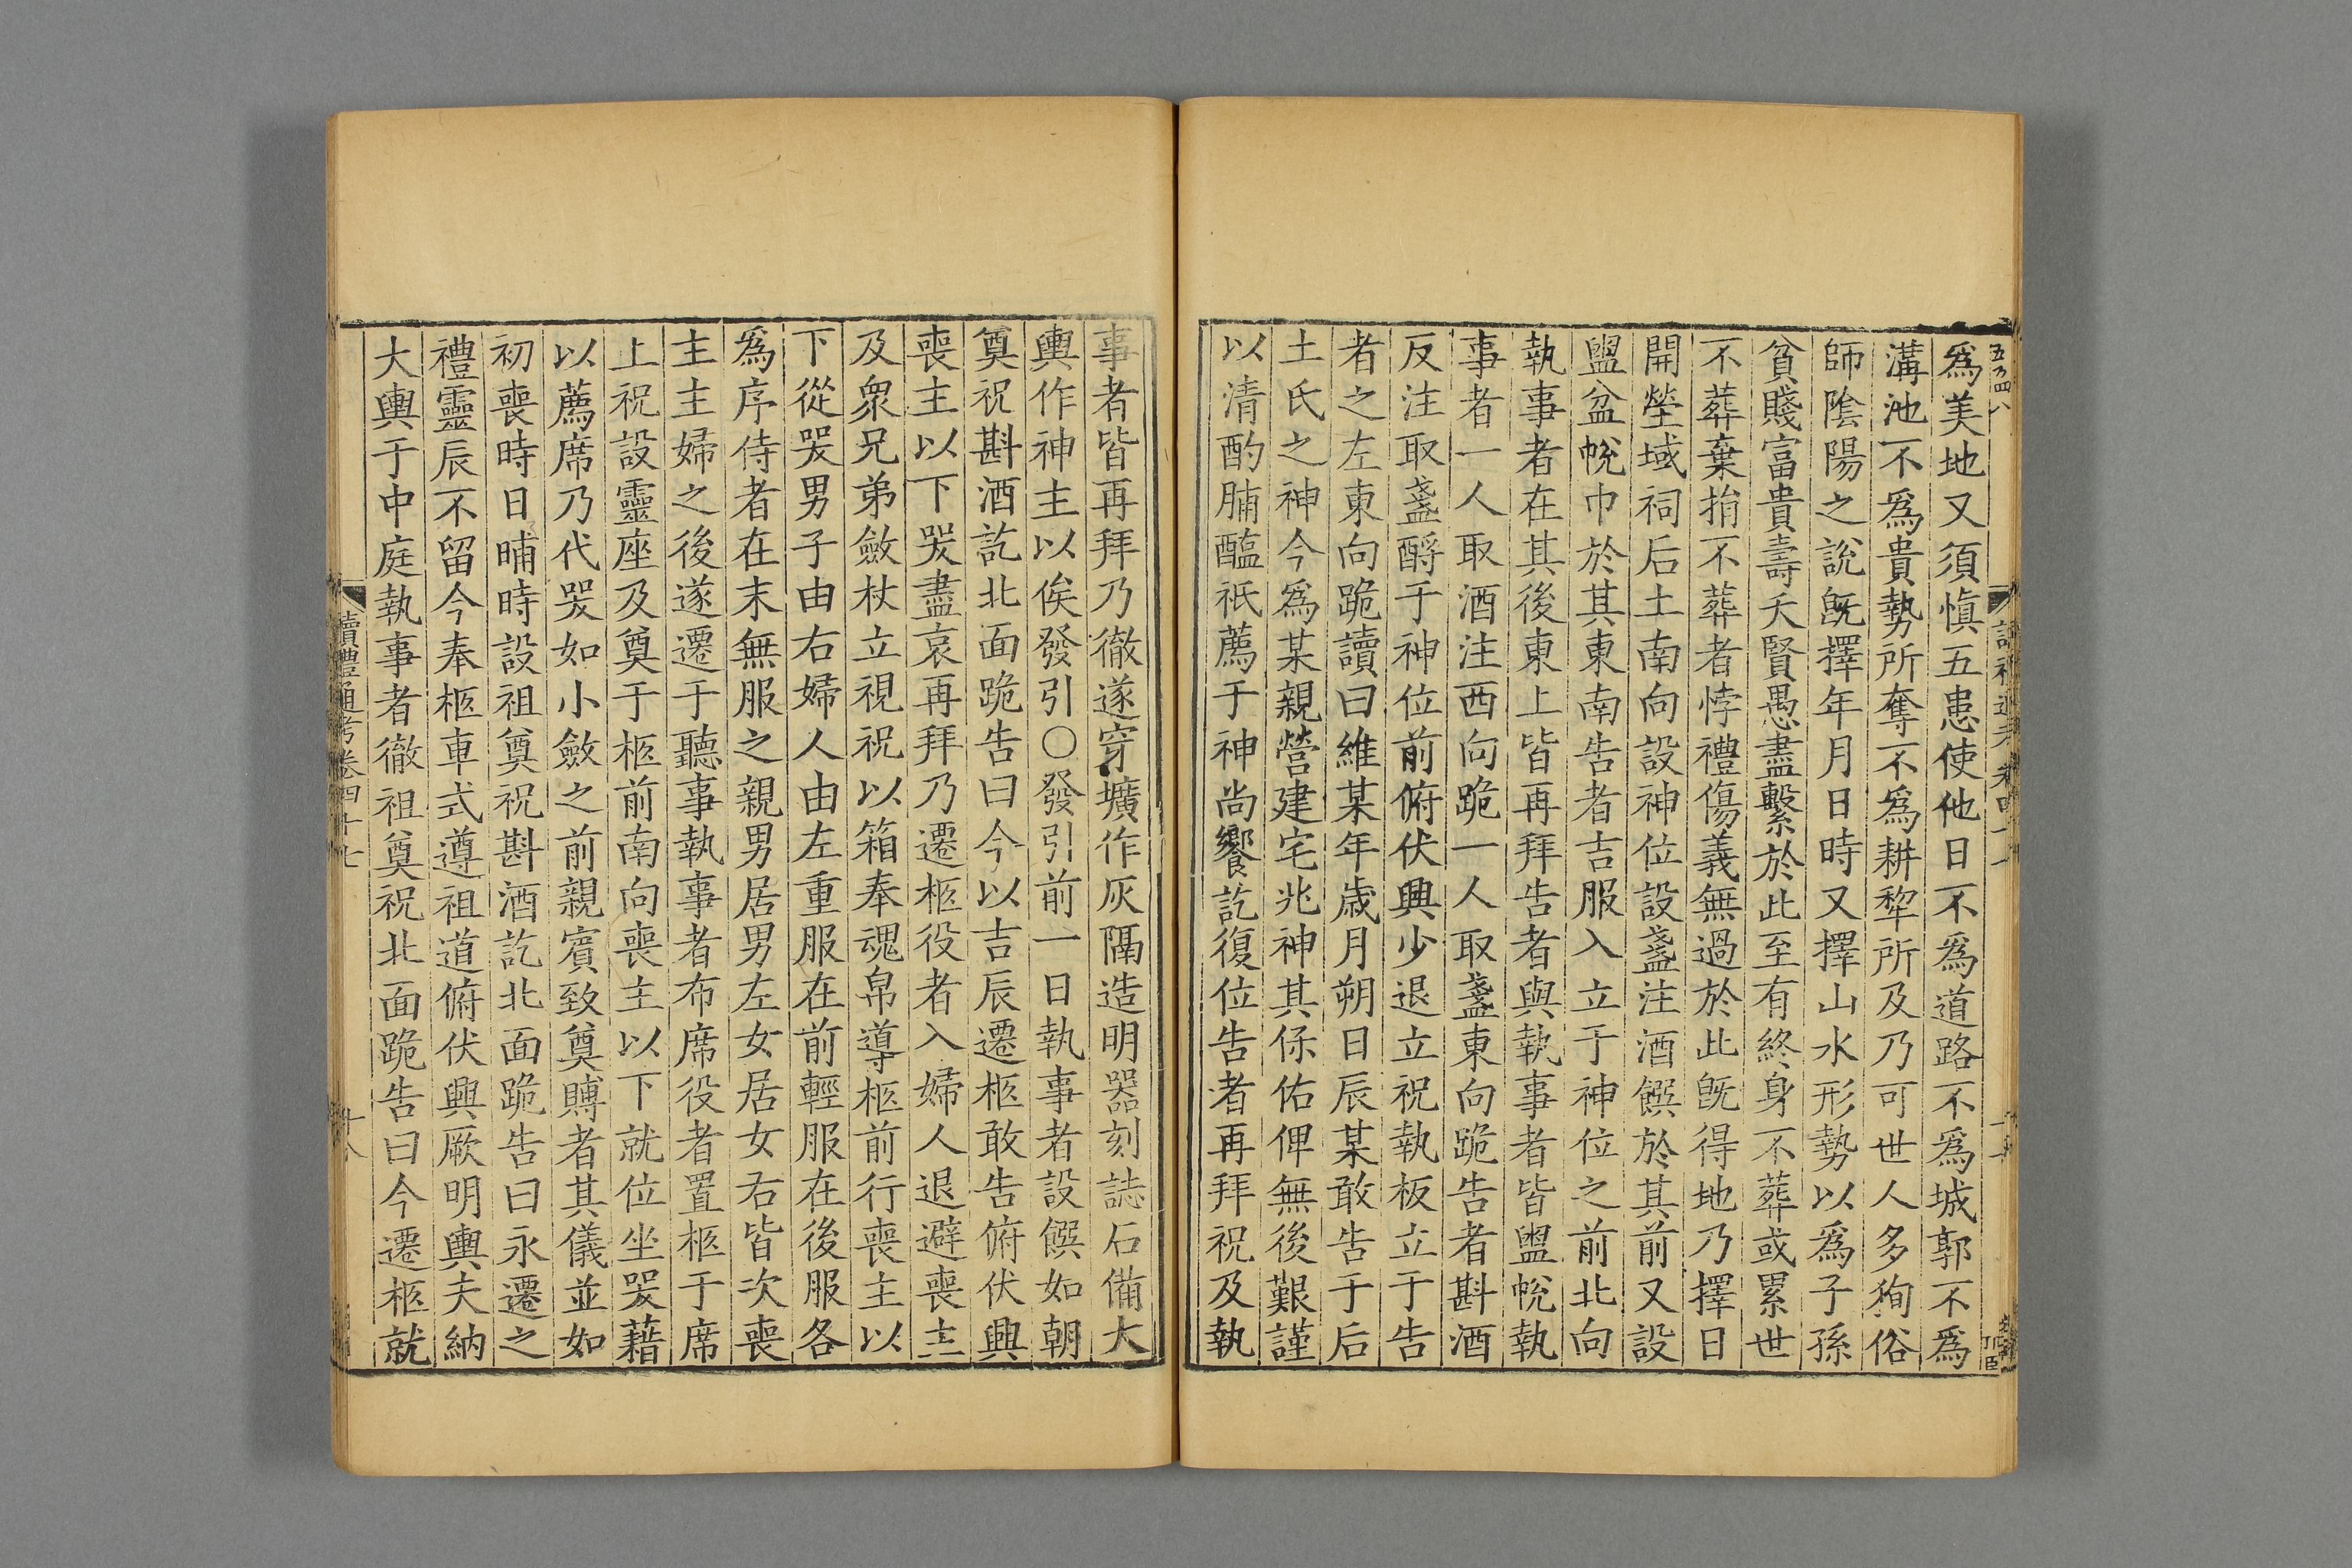 爲美地又須慎五患使他日不爲道路不爲城郭不爲
溝池不爲貴勢所奪不爲耕犂所及乃可世人多狥俗
師陰陽之說旣擇年月日時又擇山水形勢以爲子孫
貧賤富貴壽夭賢愚盡繫於此至有終身不葬或累世
不葬棄捐不葬者悖禮傷義無過於此旣得地乃擇日
開塋域祠后土南向設神位設盞注酒饌於其前又設
盥盆帨巾於其東南告者吉服入立于神位之前北向
執事者在其後東上皆再拜告者與執事者皆盥帨執
事者一人取酒注西向跪一人取盞東向跪告者斟酒
反注取盞酹于神位前俯伏興少退立祝執板立于告
者之左東向跪讀曰維某年歲月朔日辰某敢告于后
土氏之神今爲某親營建宅兆神其保佑俾無後艱謹
以清酌脯醢祇薦于神尚饗訖復位告者再拜祝及執
事者皆再拜乃徹遂穿壙作灰隔造明器刻誌石備大
輿作神主以俟發引○發引前一日執事者設饌如朝
奠祝斟酒訖北面跪告曰今以吉辰遷柩敢告俯伏興
喪主以下哭盡哀再拜乃遷柩役者入婦人退避喪主
及衆兄弟斂杖立視祝以箱奉魂帛導柩前行喪主以
下從哭男子由右婦人由左重服在前輕服在後服各
爲序侍者在末無服之親男居男左女居女右皆次喪
主主婦之後遂遷于聽事執事者布席役者置柩于席
上祝設靈座及奠于柩前南向喪主以下就位坐哭藉
以薦席乃代哭如小斂之前親賓致奠賻者其儀並如
初喪時日晡時設祖奠祝斟酒訖北面跪告曰永遷之
禮靈辰不留今奉柩車式遵祖道俯伏興厥明輿夫納
大輿于中庭執事者徹祖奠祝北面跪告曰今遷柩就
讀禮通考卷四十七